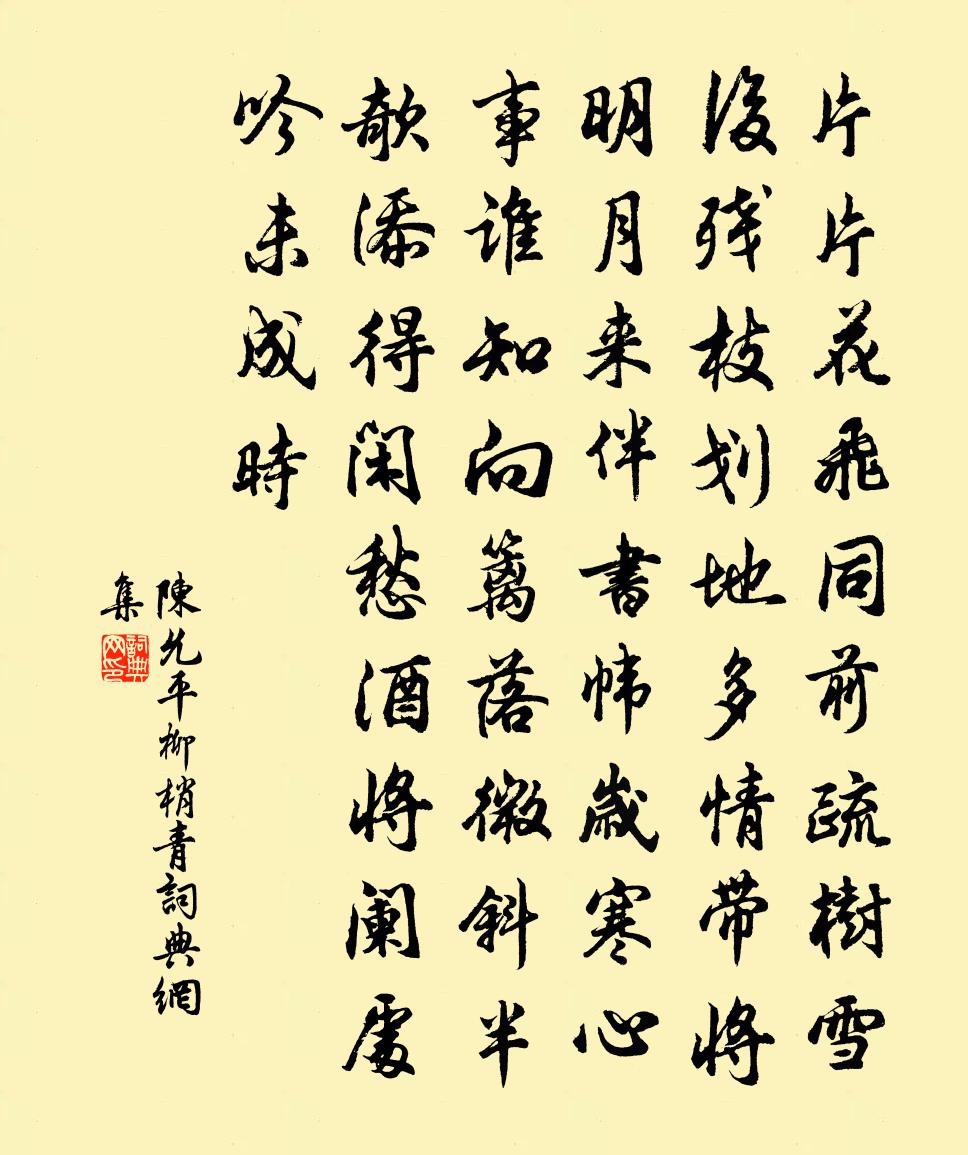 片片花飛同前疏樹雪
後残枝划地多情带将
明月来伴書幃歲寒心
事誰知向篱落微斜半
欹添得闲愁酒将阑處
吟未成時
陳允平柳梢青詞典網
集
詞典网印